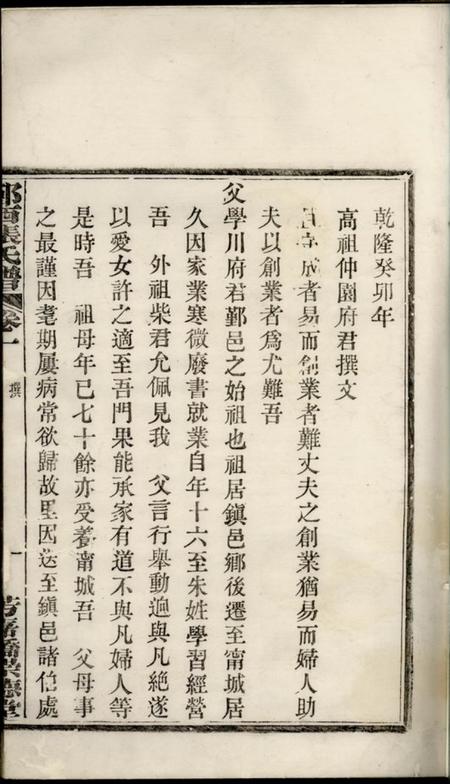 乾隆癸卯年
高祖仲園府君撰文
守成者易而創業者難丈夫之創業猶易而婦人助
夫以創業者爲尤難吾
父學川府君鄞邑之始祖也祖居鎮邑鄉後遷至甯城居
久因家業寒微廢書就業自年十六至朱姓學習經營
吾　外祖柴君允佩見我　父言行舉動逈與凡絶遂
以愛女許之適至吾門果能承家有道不與凡婦人等
是時吾　祖母年已七十餘亦受養甯城吾　父母事
之最謹因耄期屢病常欲歸故里因送至鎮邑諸伯處
張氏譜 卷一 撰 一